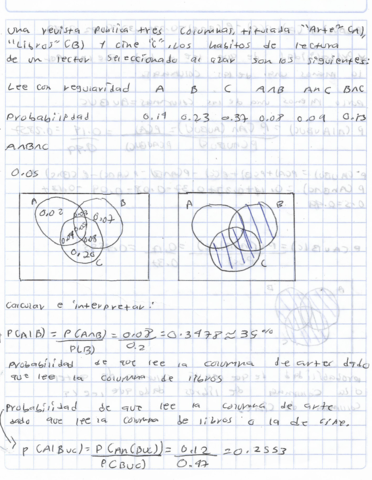 una revista Publica tres columnas, titulada "Arte" (A),
"Libros" (B) y cine "C". Los habitos de lectura
de un lector seleccionado al azar son los siguientes:
Lee con regularidad A B C A∩B A∩C B∩C
Probabilidad 0.14 0.23 0.37 0.08 0.09 0.13
A∩B∩C
0.05
A B A B
0.02 0.03 0.07
0.05
0.04 0.08
0.20
C C
Calcular e interpretar:
P(A|B) = P(A∩B) / P(B) = 0.08 / 0.2 = 0.3478 ≈ 35%
Probabilidad de que lee la columna de arte dado
que lee la columna de libros
Probabilidad de que lee la columna de arte
dado que lee la columna de libros o la de
P(A|BUC) = P(A∩(BUC)) / P(BUC) = 0.12 / 0.47 = 0.2553